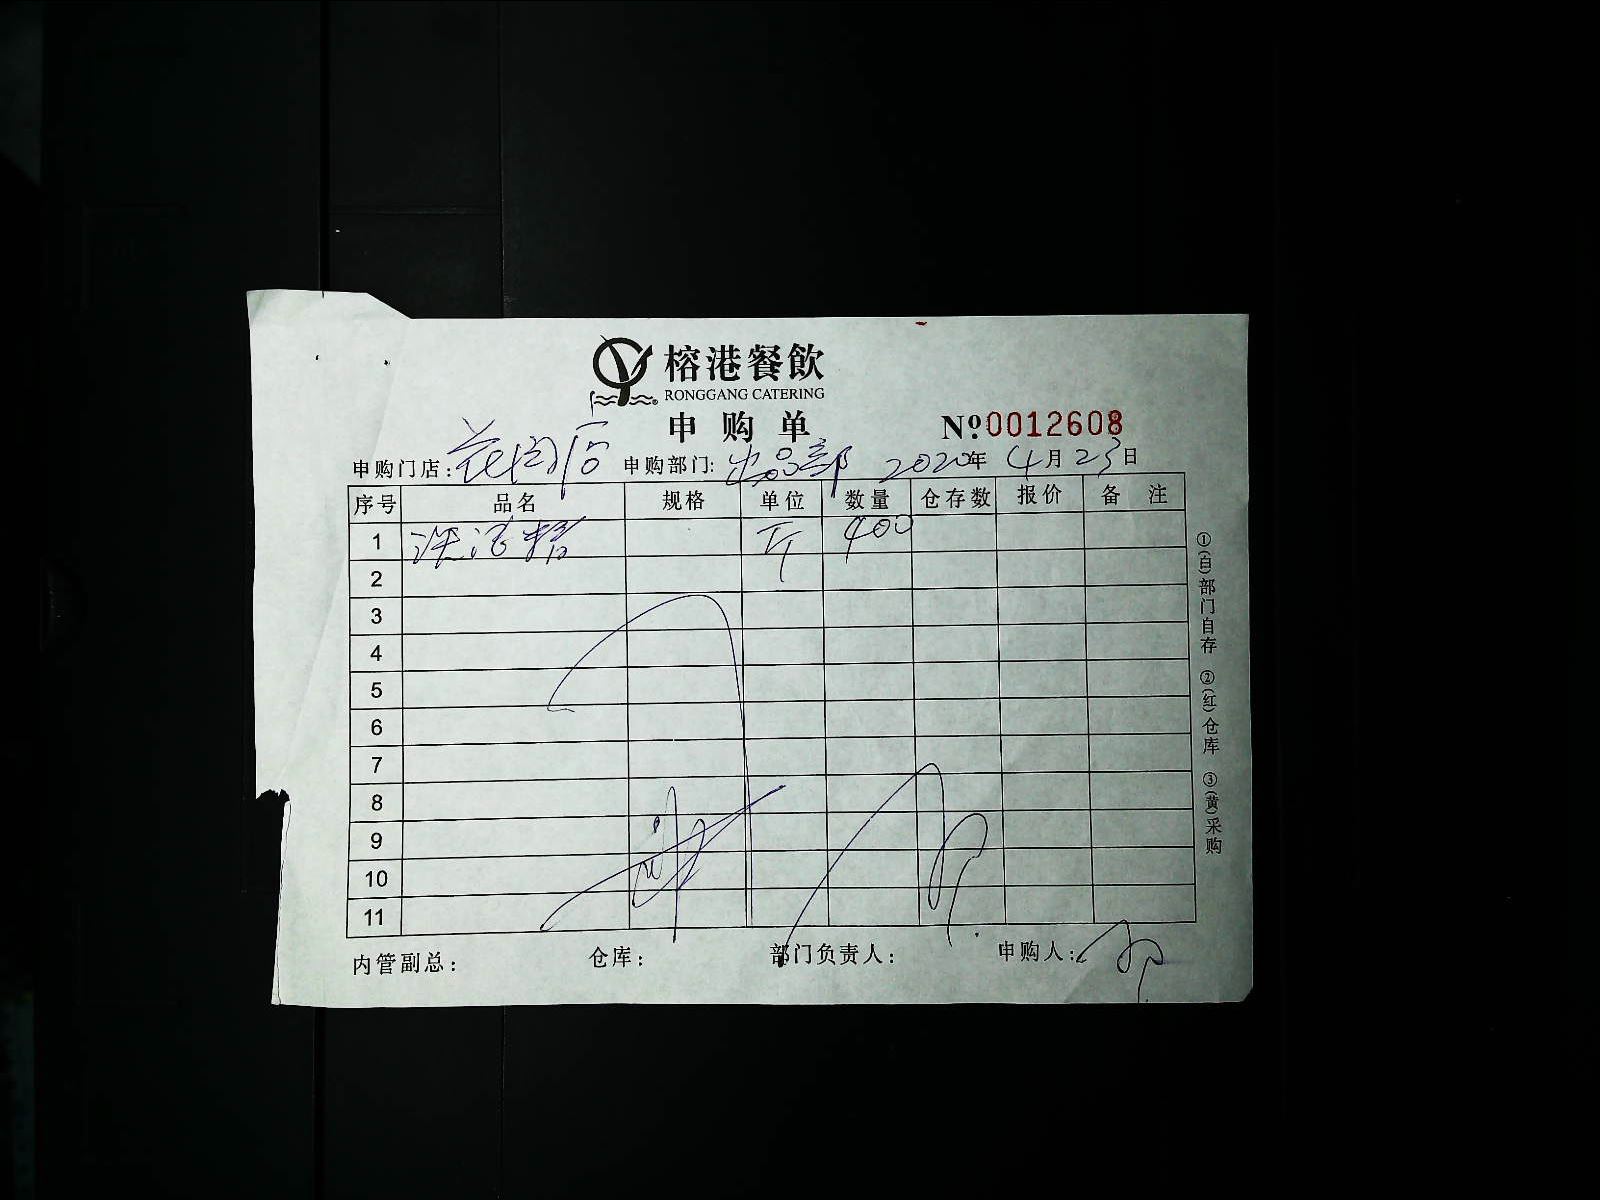 榕港餐飲
RONGGANG CATERING
申购单 Nº 0012608
申购门店: 花园店 申购部门: 出品部 2020年 4月 23日
序号 品名 规格 单位 数量 仓存数 报价 备 注
1 洗洁精 斤 400
2
3
4
5
6
7
8
9
10
11
内管副总: 仓库: 部门负责人: 申购人:
①(白)部门自存 ②(红)仓库 ③(黄)采购